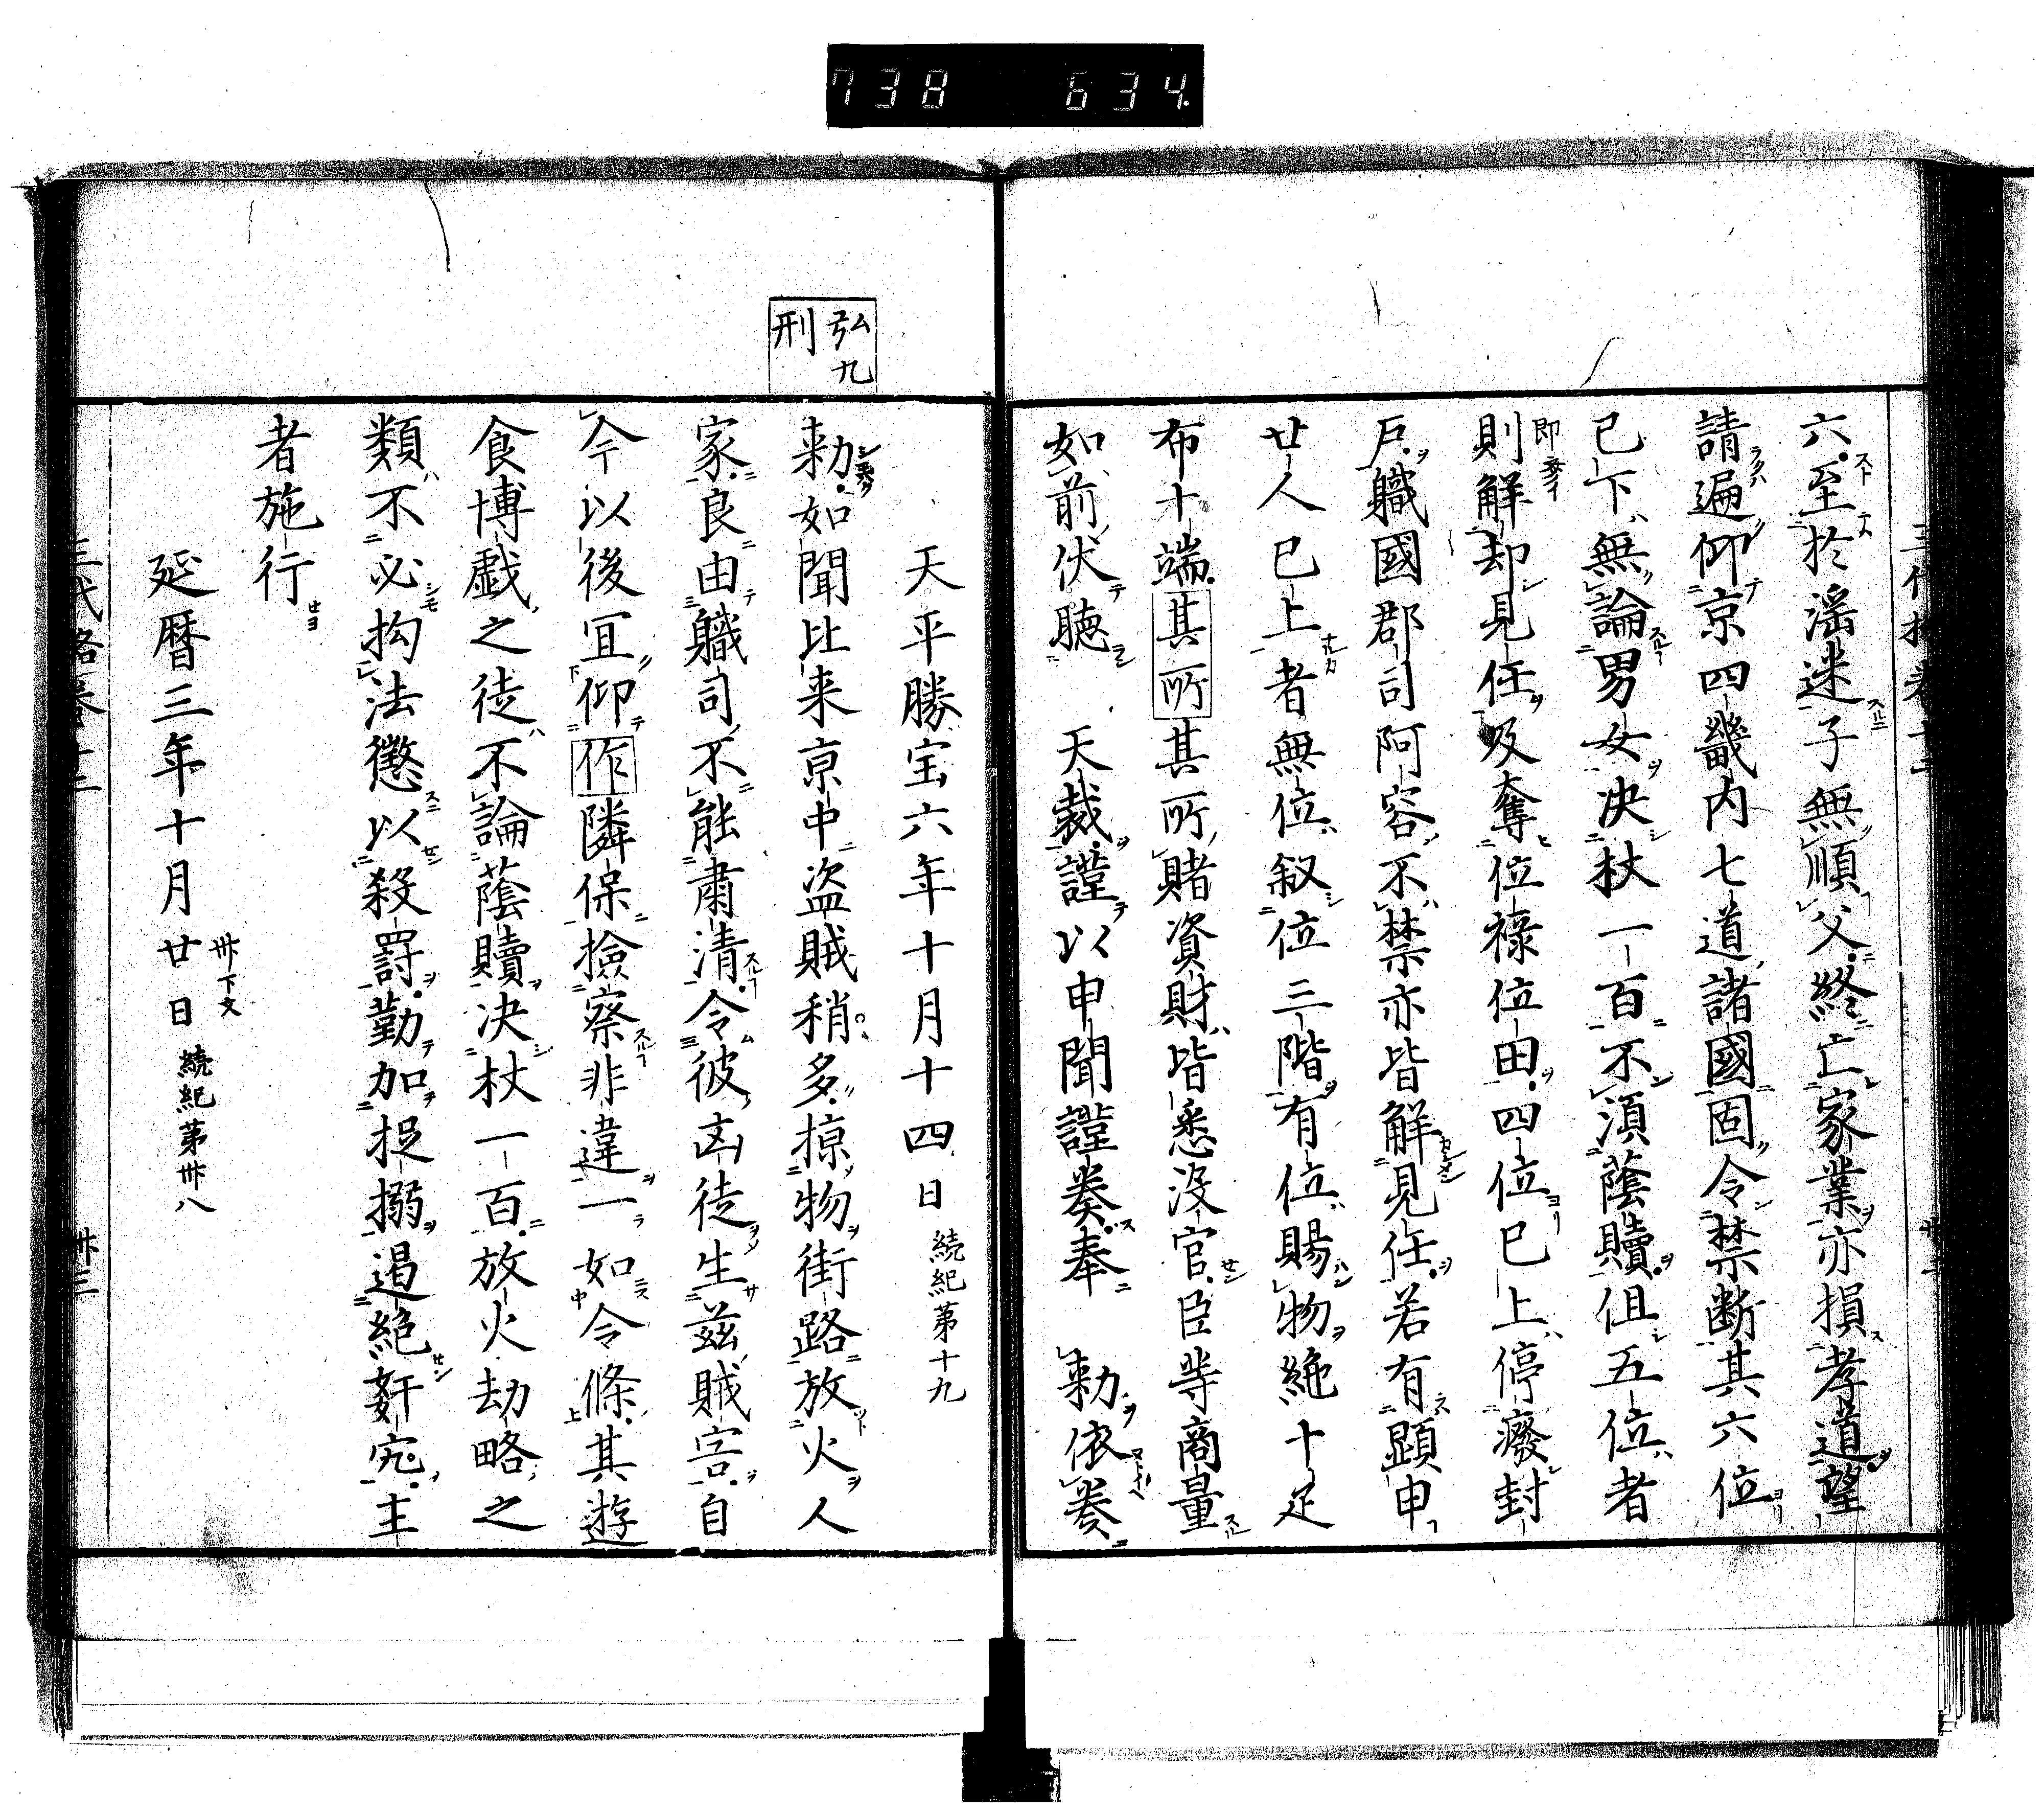 738 634
六至於滛迷子無順父終亡家業亦損孝道望
請遍仰京四畿内七道諸國固令禁断其六位
已下無論男女决杖一百不湏蔭贖但五位者
則解却見任及奪位祿位田四位已上停癈封
戸職國郡司阿容不禁亦皆解見任若有顕申
廿人已上者無位叙位三階有位賜物絁十疋
布十端其所其所賭資財皆悉没官臣等商量
如前伏聴　天裁謹以申聞謹奏奉　勅依奏
天平勝宝六年十月十四日 続紀第十九
弘九
刑
勅如聞比来京中盗賊稍多掠物街路放火人
家良由職司不能肅清令彼凶徒生茲賊害自
今以後冝仰作隣保撿察非違一如令條其遊
食博戯之徒不論蔭贖决杖一百放火劫略之
類不必拘法懲以殺罸勤加捉搦遏絶奸宄主
者施行
延暦三年十月廿日 続紀第卅八
卅下文
三代格巻十二
卅三